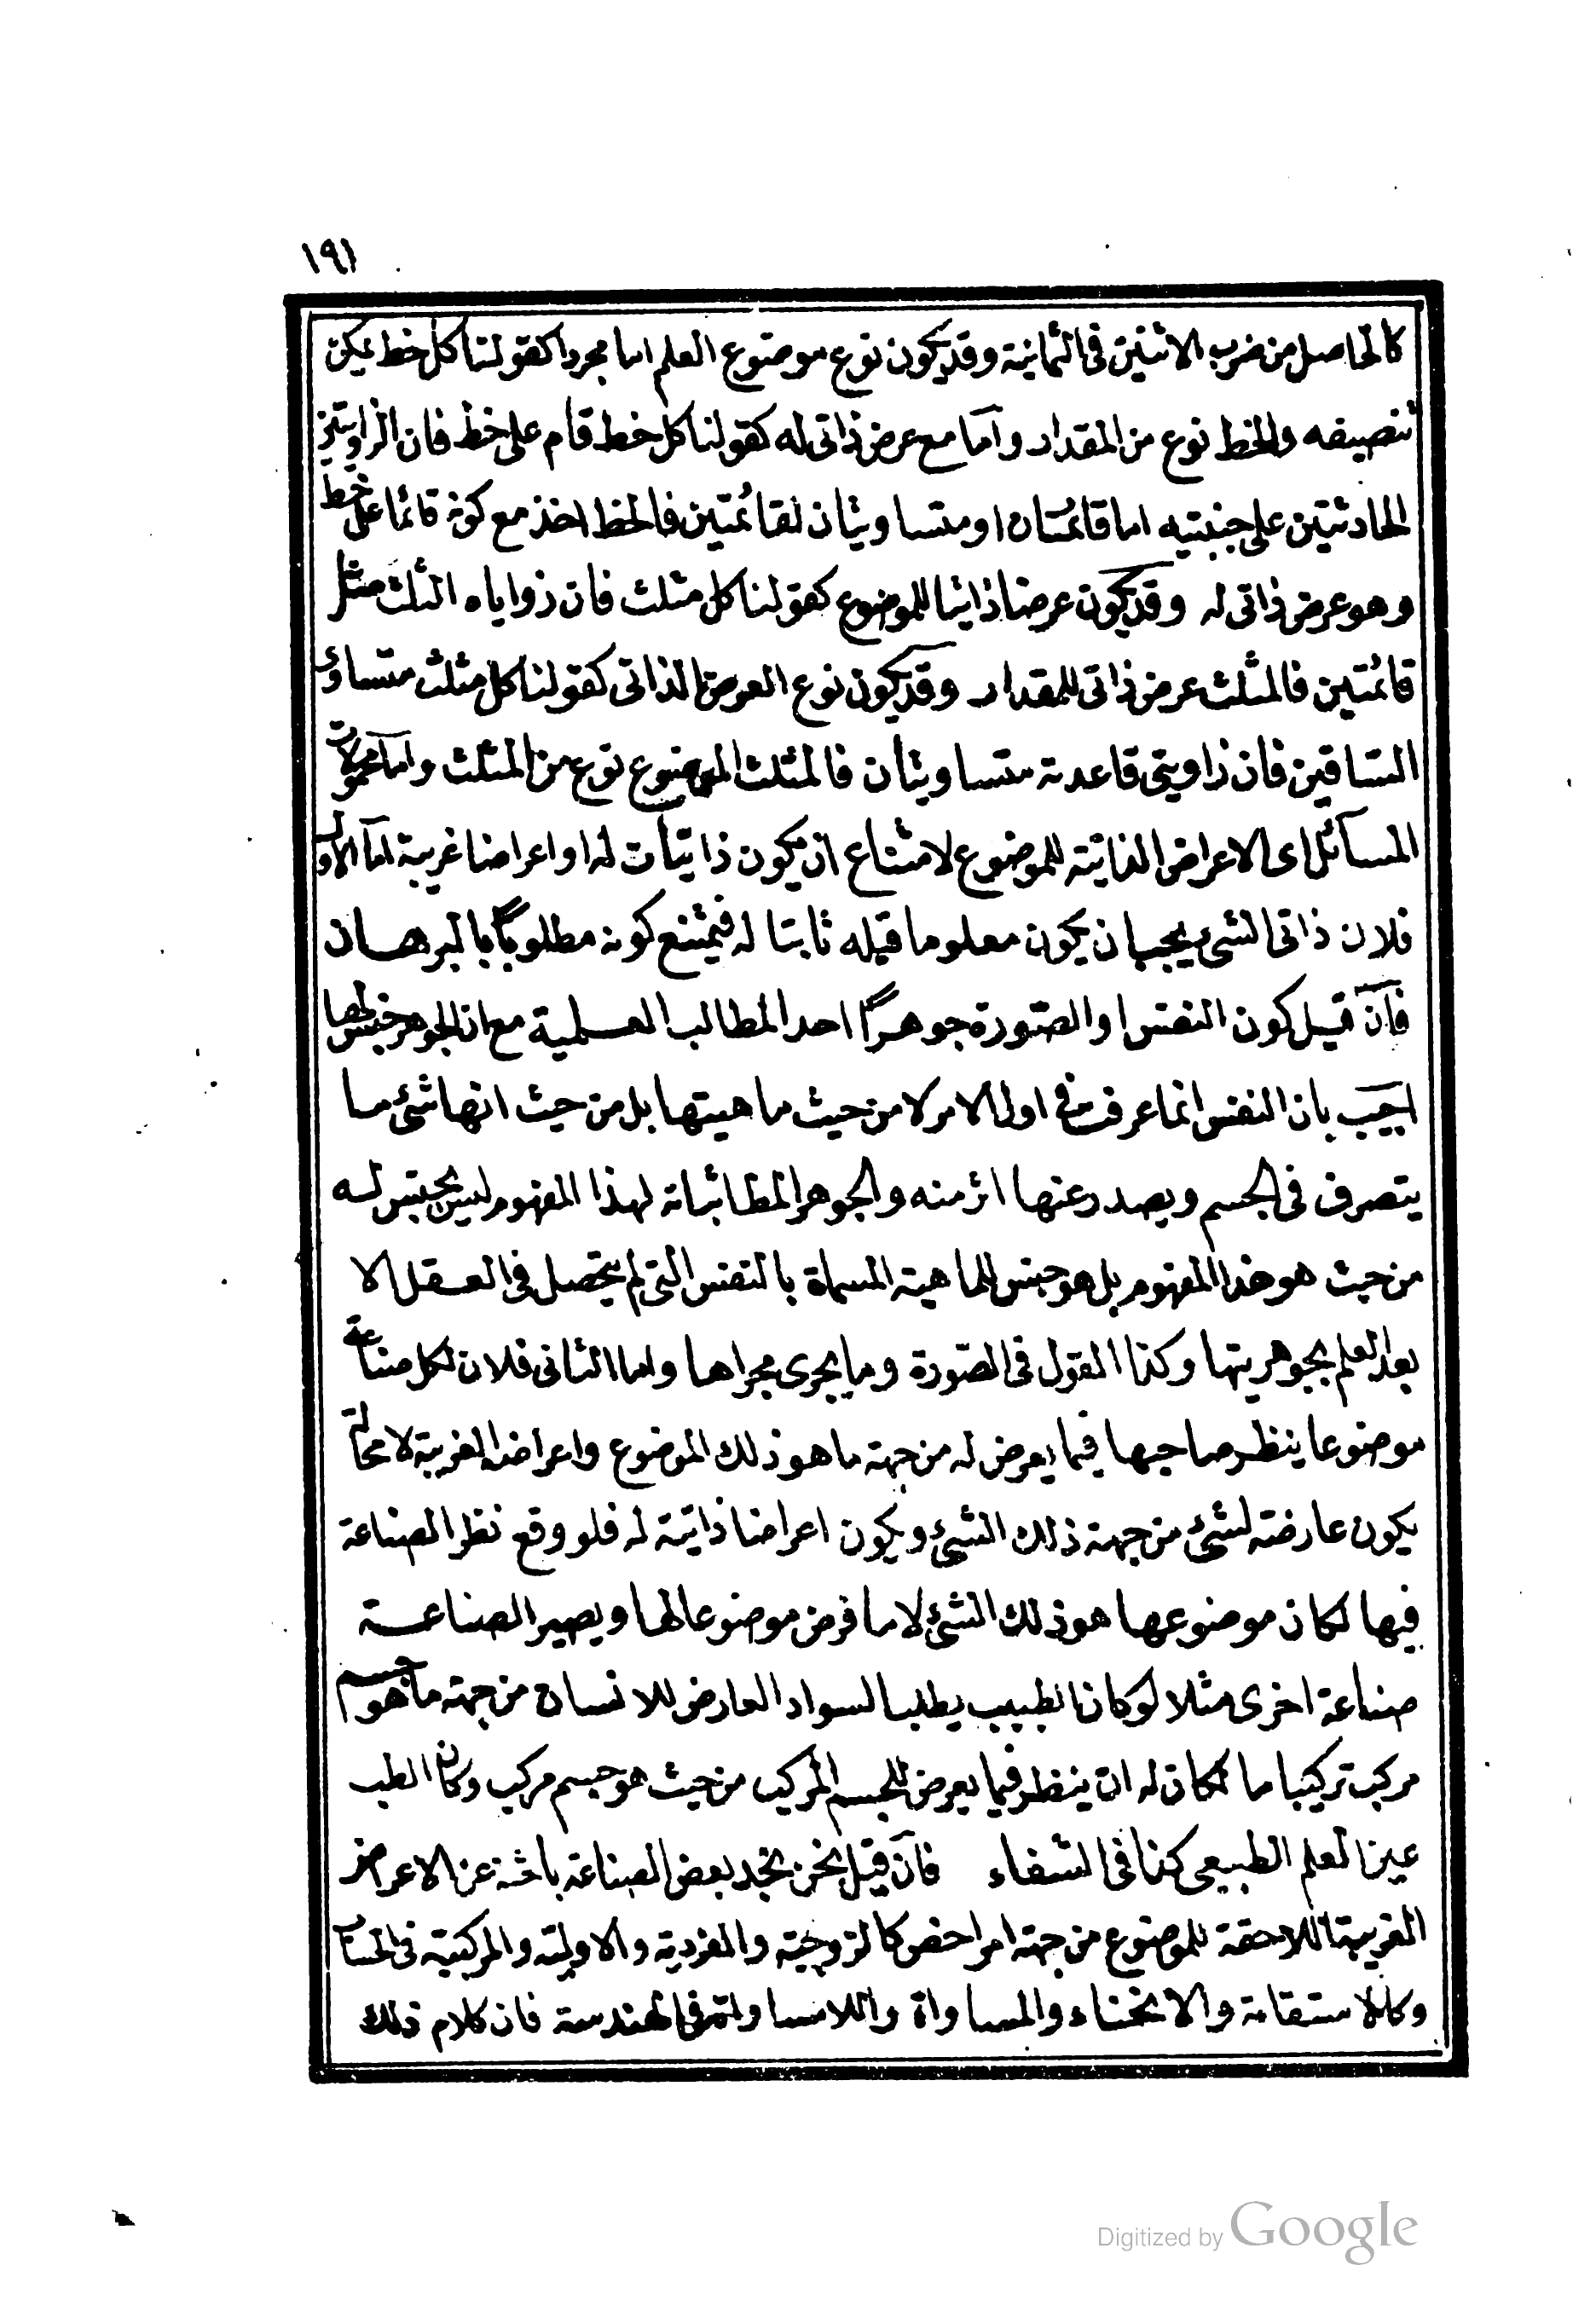 ١٩١
كالحاصل من ضرب الاثنين فى الثمانية وقد يكون نوع موضوع العلم اما مجردا كقولنا كل خط يمكن
تنصيفه والخط نوع من المقدار واما مع عرض ذاتى له كقولنا كل خط قام على خط فان الزاويتين
الحادثتين على جنبتيه اما قائمتان او متساويتان لقائمتين فالخط اخذ مع كونه قائما على خط
وهو عرض ذاتى له وقد يكون عرضا ذاتيا للموضوع كقولنا كل مثلث فان زواياه الثلث مثل
قائمتين فالمثلث عرض ذاتى للمقدار وقد يكون نوع العرض الذاتى كقولنا كل مثلث متساوى
الساقين فان زاويتى قاعدته متساويتان فالمثلث الموضوع نوع من المثلث واما محمولات
المسائل اى الاعراض الذاتية للموضوع لامتناع ان يكون ذاتيات له او اعراضا غريبة اما الاول
فلان ذاتى الشئ يجب ان يكون معلوما قبله ثابتا له فيمتنع كونه مطلوبا بالبرهان
فان قيل كون النفس او الصورة جوهرا احد المطالب العلمية مع ان الجوهر جنس لها
اجيب بان النفس انما عرف فى اول الامر لا من حيث ماهيتها بل من حيث انها شئ ما
يتصرف فى الجسم ويصدر عنها اثر منه والجوهر المطا اثباته لهذا المفهوم ليس بجنس له
من حيث هو هذا المفهوم بل هو جنس للماهية المسماة بالنفس التى لم يتحصل فى العقل الا
بعد العلم بجوهريتها وكذا القول فى الصورة وما يجرى مجراها واما الثانى فلان لكل صناعة
موضوعا ينظر صاحبها فيما يعرض له من جهة ما هو ذلك الموضوع واعراضه الغريبة لا محالة
يكون عارضة لشئ من جهة ذلك الشئ ويكون اعراضا ذاتية له فلو وقع نظر الصناعة
فيها لكان موضوعها هو ذلك الشئ لا ما فرض موضوعا لها ويصير الصناعة
صناعة اخرى مثلا لو كان الطبيب يطلب السواد العارض للانسان من جهة ما هو جسم
مركب تركيبا ما لكان له ان ينظر فيما يعرض للجسم المركب من حيث هو جسم مركب وكان الطب
عين العلم الطبيعى كذا فى الشفاء فان قيل نحن نجد بعض الصناعة باحثة عن الاعراض
الغريبة اللاحقة للموضوع من جهة امر اخص كالزوجية والفردية والاولية والمركبية فى الحساب
وكالاستقامة والانحناء والمساواة واللامساواة فى الهندسة فان كلام ذلك
Digitized by Google